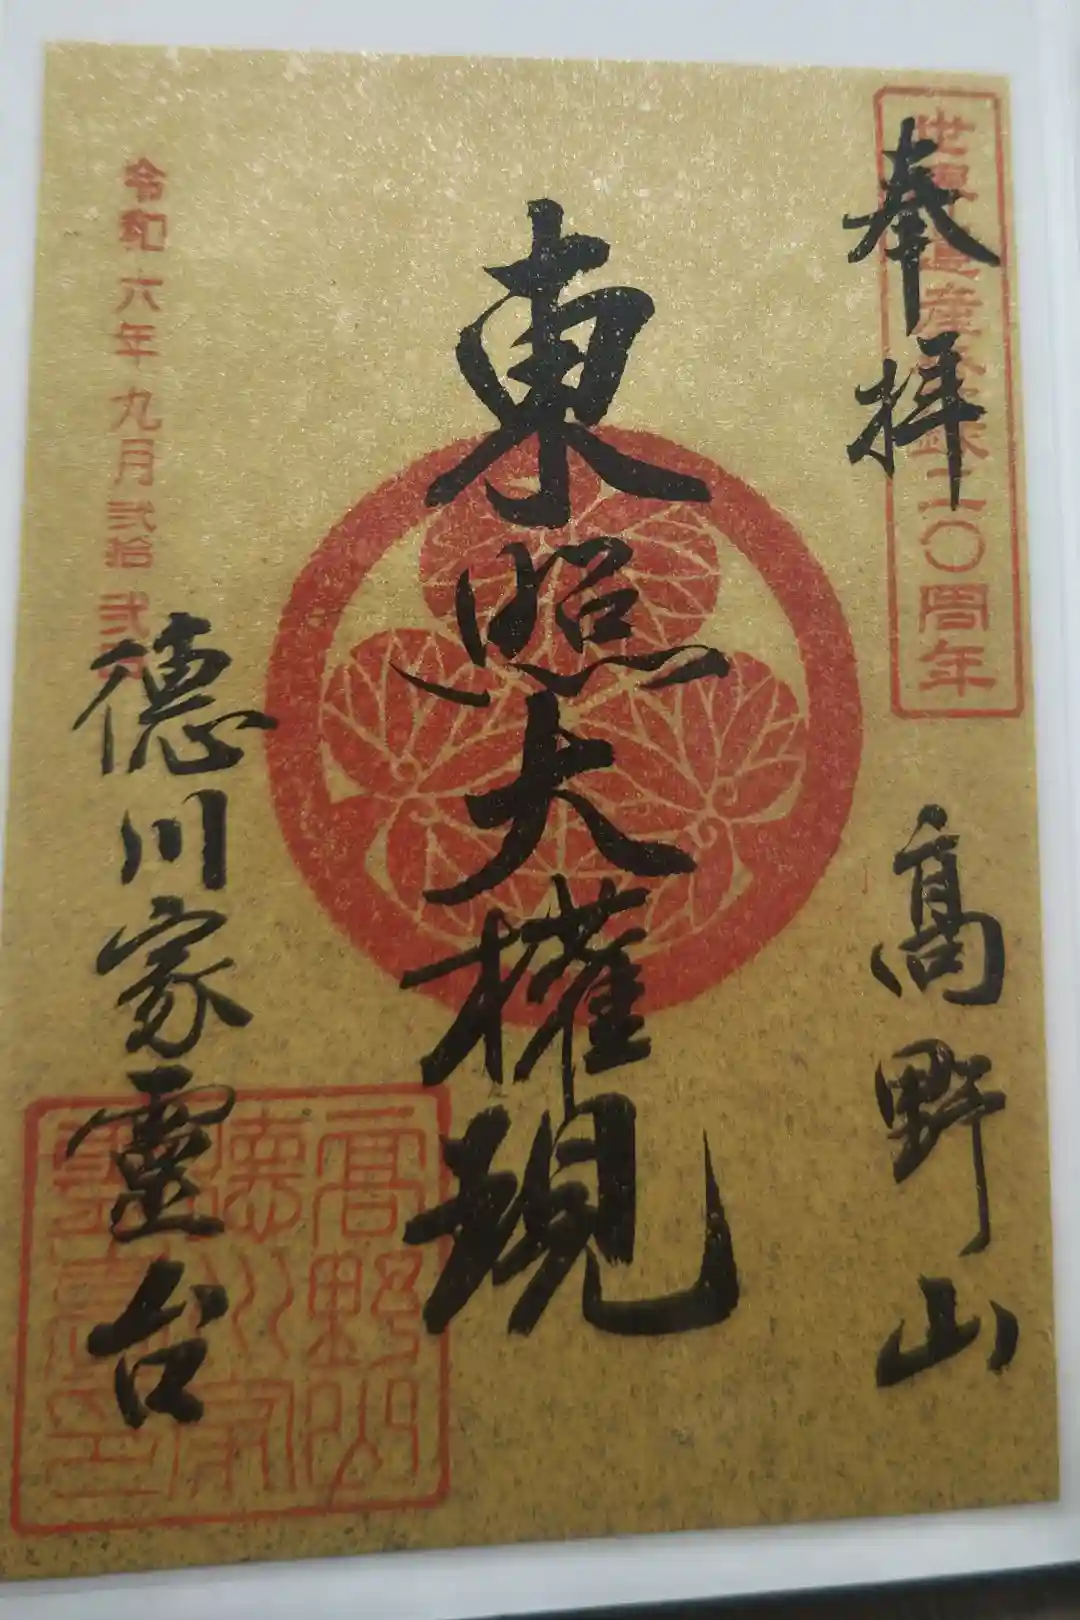 奉拝
高野山
世界遺産登録二〇周年
東照大権現
令和六年九月弐拾弐日
徳川家霊台
高野山
徳川家